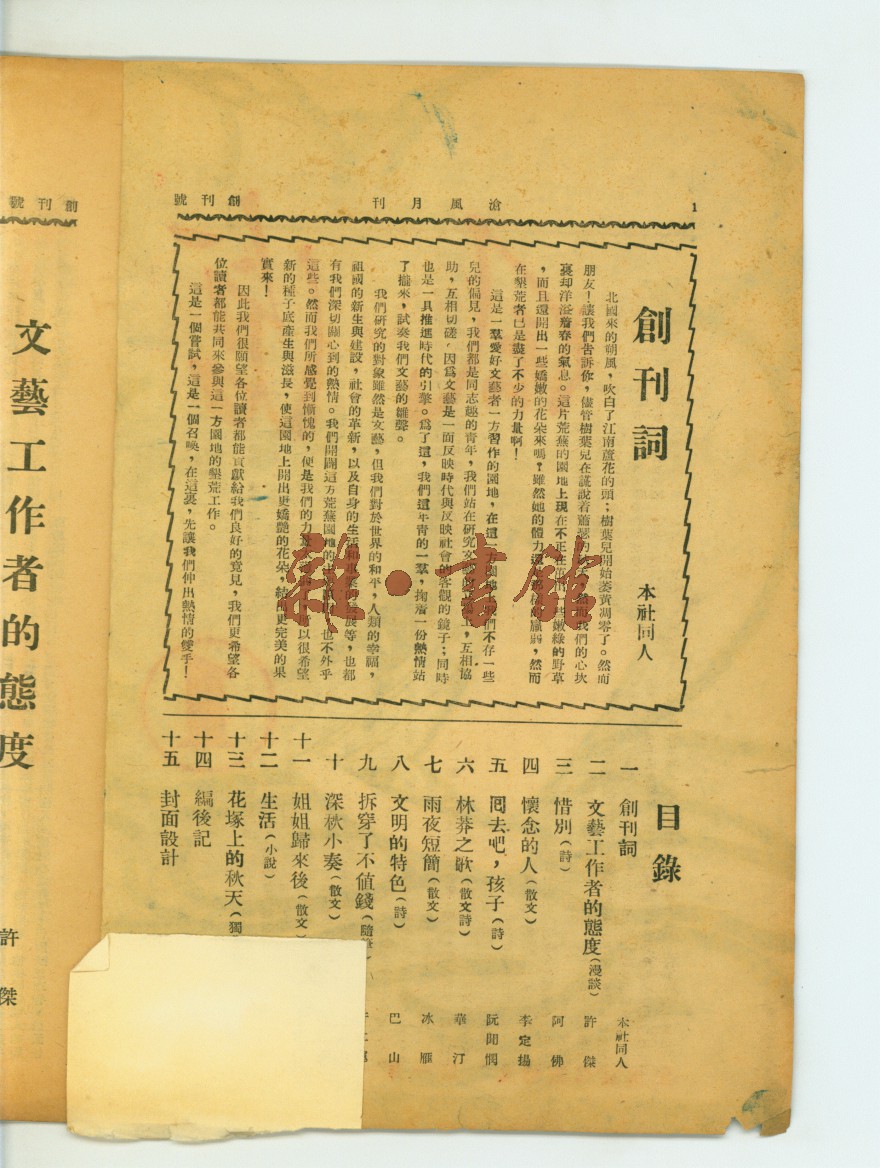 1
滄風月刊
創刊號
創刊詞
本社同人
北國來的朔風，吹白了江南蘆花的頭；樹葉兒開始萎黃凋零了。然而
朋友！讓我們告訴你，儘管樹葉兒在謊說着蕭瑟的
我們的心坎
裏却洋溢着春的氣息。這片荒蕪的園地上現在不正在
些嫩綠的野草
，而且還開出一些嬌嫩的花朵來嗎？雖然她的體力
羸弱，然而
在墾荒者已是盡了不少的力量啊！
這是一羣愛好文藝者一方習作的園地，在這一方園地
我們不存一些
兒的偏見，我們都是同志趣的青年，我們站在研究文藝的
上，互相協
助，互相切磋。因爲文藝是一面反映時代與反映社會的客觀的鏡子；同時
也是一具推進時代的引擎。爲了這，我們這年靑的一羣，掬着一份熱情站
了攏來，試奏我們文藝的雛聲。
我們研究的對象雖然是文藝，但我們對於世界的和平，人類的幸福，
祖國的新生與建設，社會的革新，以及自身的生活和事業的發展等，也都
有我們深切關心到的熱情。我們開闢這方荒蕪園地的
也不外乎
這些。然而我們所感覺到慚愧的，便是我們的力量
所以很希望
新的種子底產生與滋長，使這園地上開出更嬌艷的花朵，結出更完美的果
實來！
因此我們很願望各位讀者都能貢獻給我們良好的意見，我們更希望各
位讀者都能共同來參與這一方園地的墾荒工作。
這是一個嘗試，這是一個召喚，在這裏，先讓我們伸出熱情的雙手！
目錄
一 創刊詞 本社同人
二 文藝工作者的態度（漫談） 許傑
三 惜別（詩） 阿佛
四 懷念的人（散文） 李定揚
五 囘去吧，孩子（詩） 阮聞憫
六 林莽之歌（散文詩） 華汀
七 雨夜短簡（散文） 冰雁
八 文明的特色（詩） 巴山
九 拆穿了不值錢（隨筆
十 深秋小奏（散文）
十一 姐姐歸來後（散文）
十二 生活（小說）
十三 花塚上的秋天（獨
十四 編後記
十五 封面設計
雜·書館
創刊號
文藝工作者的態度
許傑